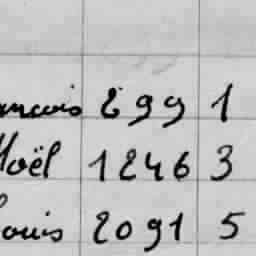 ancois 299 1
Noël 12463
ouis 2091 5